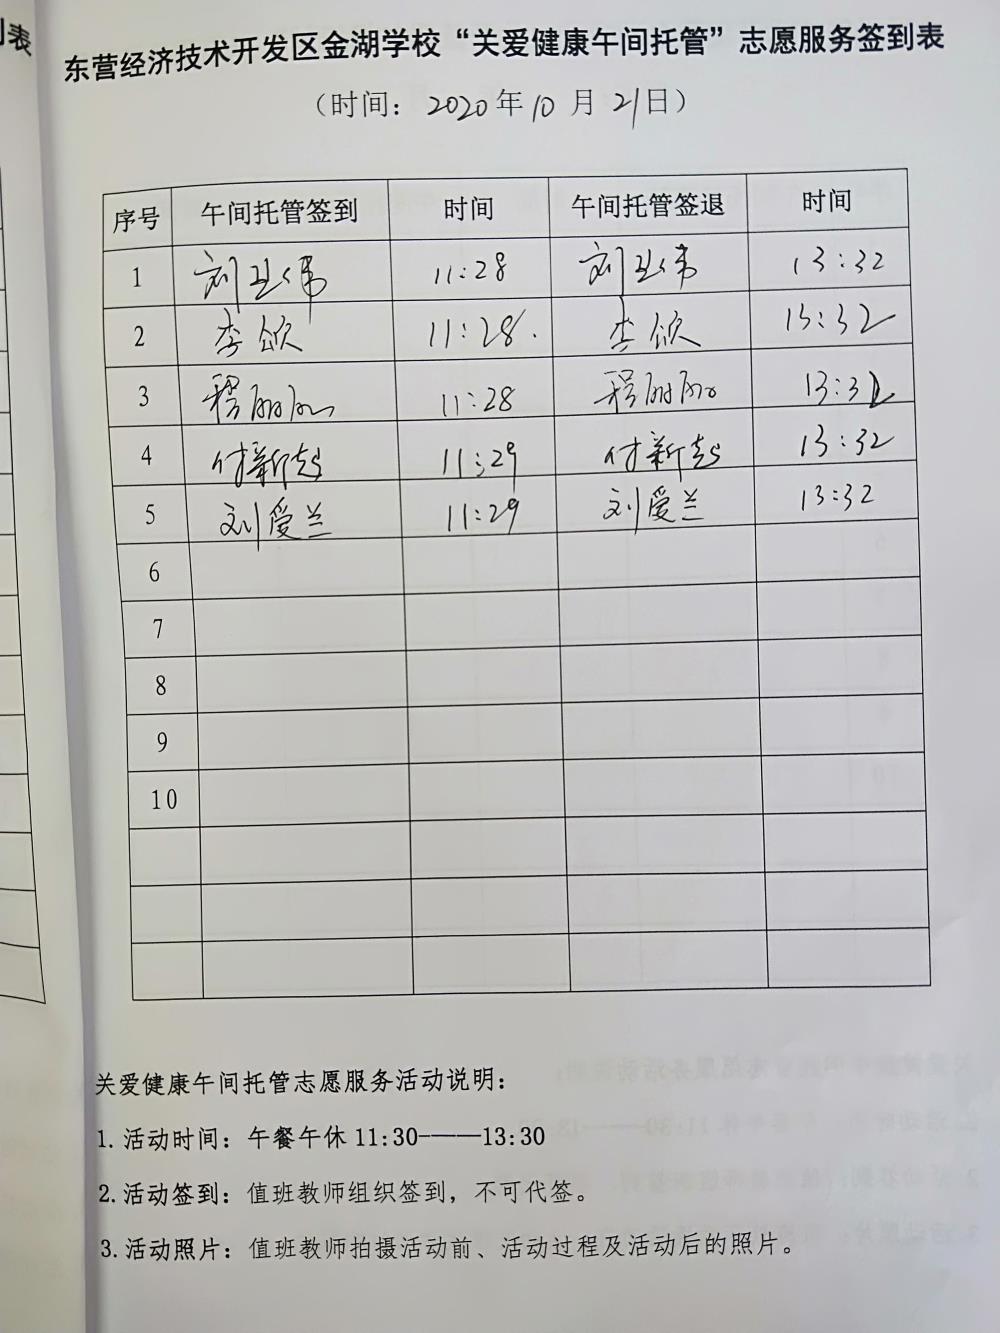 列表
东营经济技术开发区金湖学校“关爱健康午间托管”志愿服务签到表
（时间：2020年10月21日）
序号 午间托管签到 时间 午间托管签退 时间
1 刘 伟 11:28 刘 伟 13:32
2 李欣 11:28. 李欣 13:32
3 程丽丽 11:28 程丽丽 13:32
4 付新超 11:29 付新超 13:32
5 刘爱兰 11:29 刘爱兰 13:32
6
7
8
9
10
关爱健康午间托管志愿服务活动说明：
1.活动时间：午餐午休11:30——13:30
2.活动签到：值班教师组织签到，不可代签。
3.活动照片：值班教师拍摄活动前、活动过程及活动后的照片。